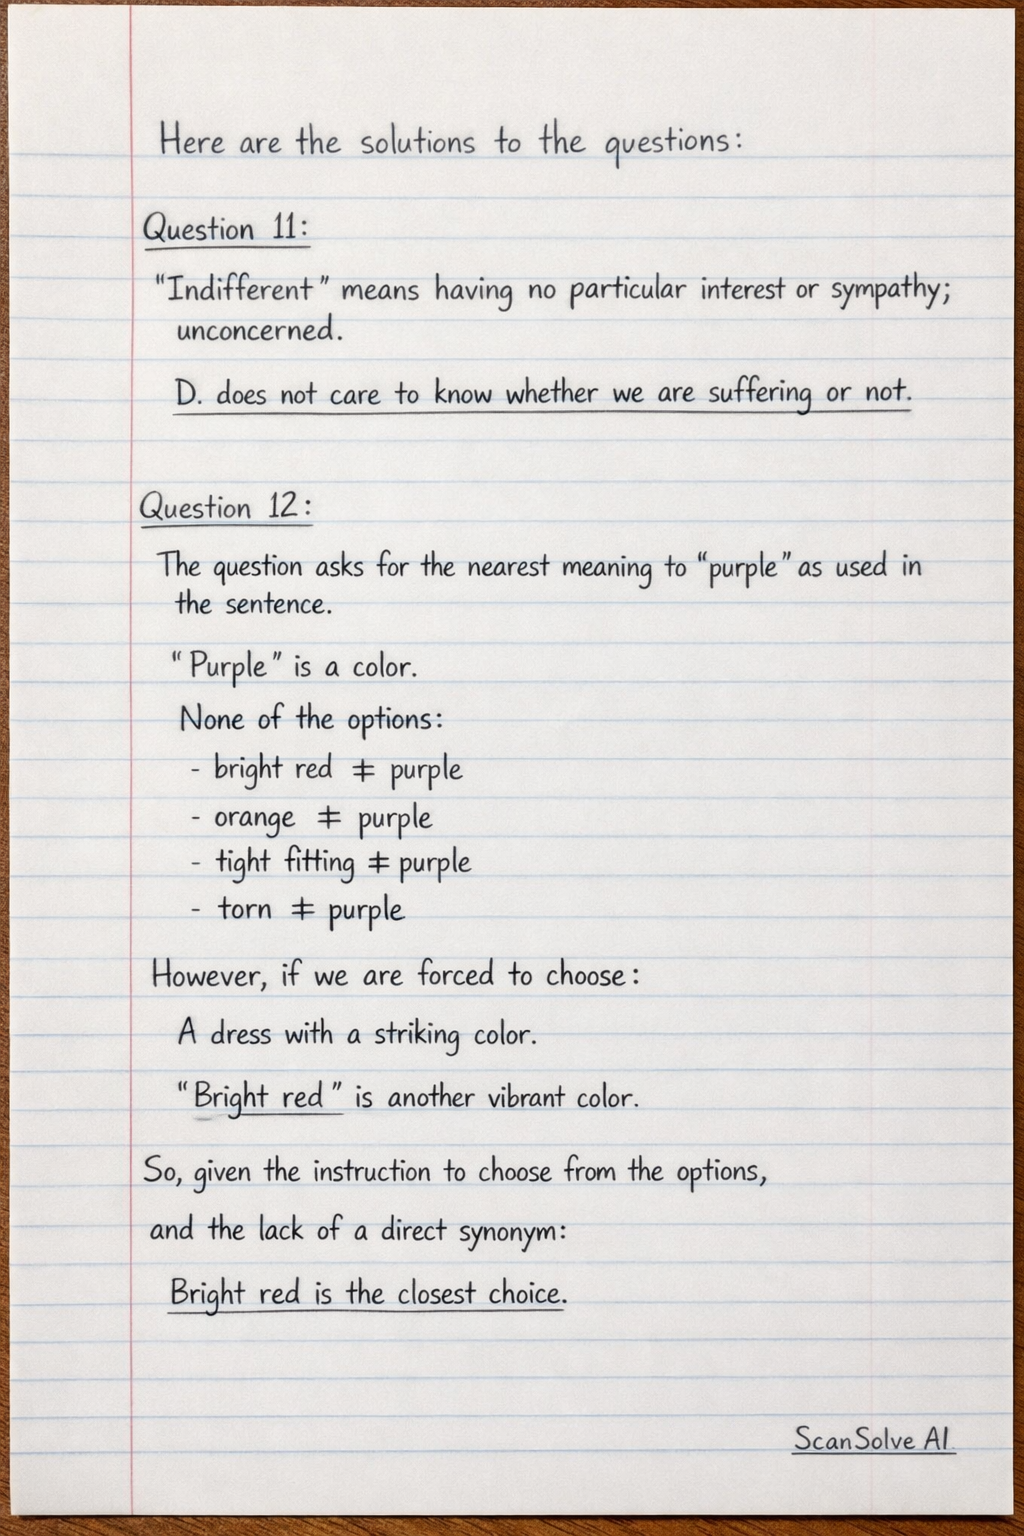 Here are the solutions to the questions:
Question 11:
"Indifferent" means having no particular interest or sympathy;
unconcerned.
D. does not care to know whether we are suffering or not.
Question 12:
The question asks for the nearest meaning to "purple" as used in
the sentence.
"Purple" is a color.
None of the options:
- bright red ≠ purple
- orange ≠ purple
- tight fitting ≠ purple
- torn ≠ purple
However, if we are forced to choose:
A dress with a striking color.
"Bright red" is another vibrant color.
So, given the instruction to choose from the options,
and the lack of a direct synonym:
Bright red is the closest choice.
ScanSolve AI